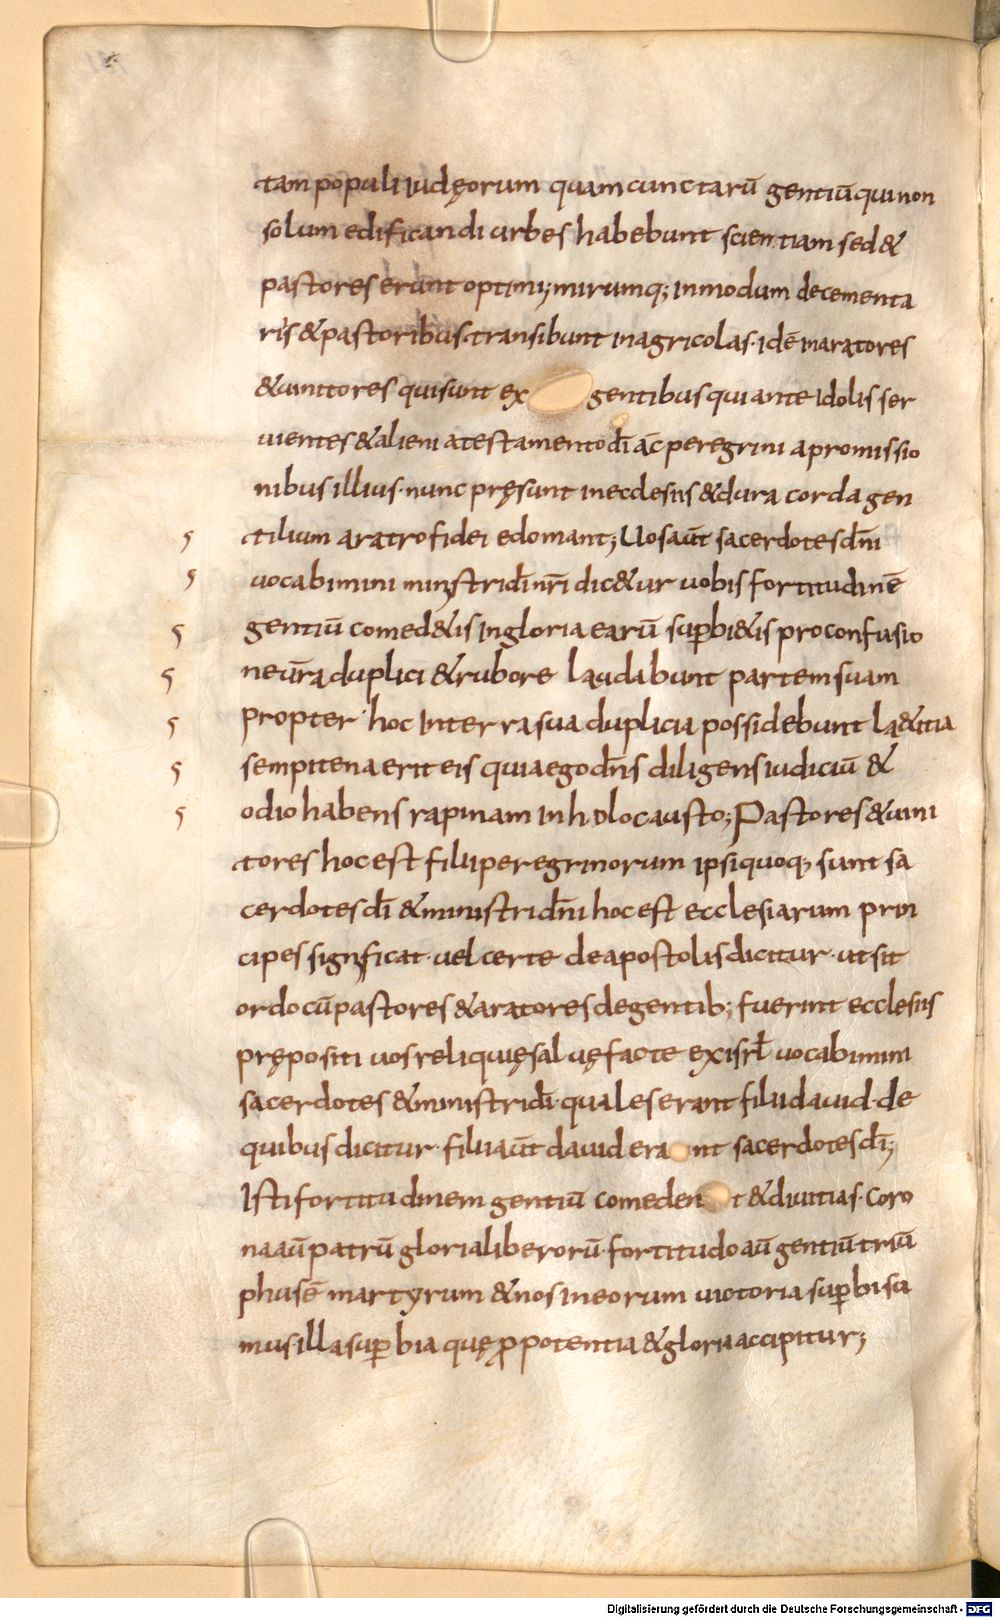 tam populi iudęorum quam cunctarū gentiū qui non
solum edificandi urbes habebunt scientiam sed &
pastores erunt optimi; mirumq; inmodum decementa
riis & pastoribus transibunt in agricolas · idē in aratores
& uinitores qui sunt ex gentibus qui ante idolis ser
uientes & alieni a testamento dī ac peregrini a promissio
nibus illius · nunc pręsunt in ecclesiis & dura corda gen
tilium aratro fidei edomant; Uos aūt sacerdotes dn̄i
uocabimini ministri dī nr̄i dic&ur uobis fortitudinē
gentiū comed&is In gloria earū sup̄bi&is pro confusio
ne ūrą duplici & rubore laudabunt partem suam
propter hoc In terra sua duplicia possidebunt lę&itia
sempitena erit eis quia ego dn̄s diligens iudiciū &
odio habens rapinam in holocausto; Pastores & uini
tores hoc est filii peregrinorum ipsi quoq; sunt sa
cerdotes dī & ministri dn̄i hoc est ecclesiarum prin
cipes significat · uel certe de apostolis dicitur · ut sit
ordo cū pastores & aratores de gentib; fuerint ecclesiis
prępositi uos reliquię saluę factę ex isrł uocabimini
sacerdotes & ministri dī · quales erant filii dauid · de
quibus dicitur · filii aūt dauid erant sacerdotes dī;
Isti fortitudinem gentiū comedent & diuitias · Coro
na aū patrū gloria liberorū · fortitudo aū gentiū triū
phus ē martyrum & nos in eorum uictoria sup̄bi su
mus illa sup̄bia quę ꝓ potentia & gloria accipitur;
Digitalisierung gefördert durch die Deutsche Forschungsgemeinschaft - DFG